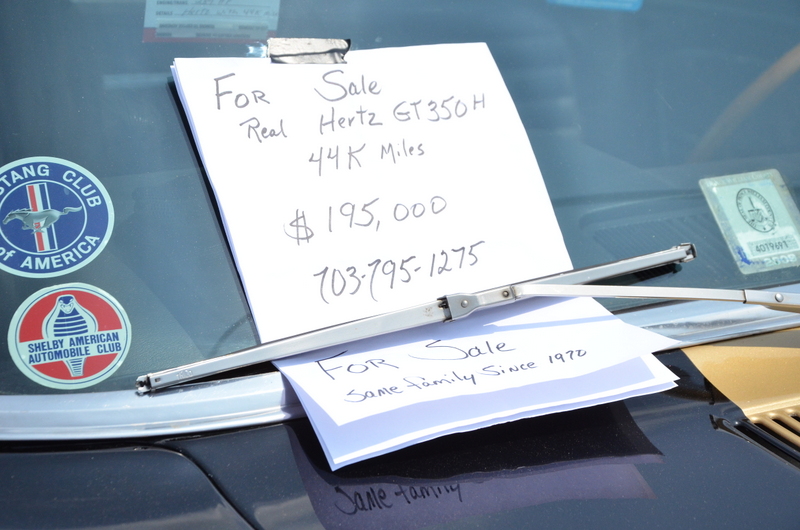 For Sale
Real Hertz GT350H
44K Miles
$195,000
703-795-1275
For Sale
Same family Since 1970
Same family
STANG CLUB
of AMERICA
SHELBY AMERICAN
AUTOMOBILE CLUB